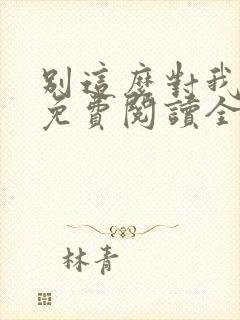 別這麼對我
免費閱讀全
林青